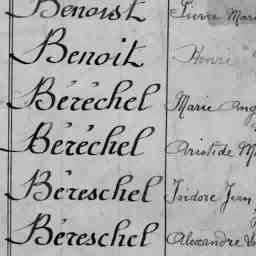 Benoist Pierre Mari
Benoit Henri
Béréchel Marie Ang
Béréchel Aristide M
Béreschel Isidore Jean
Béreschel Alexandre